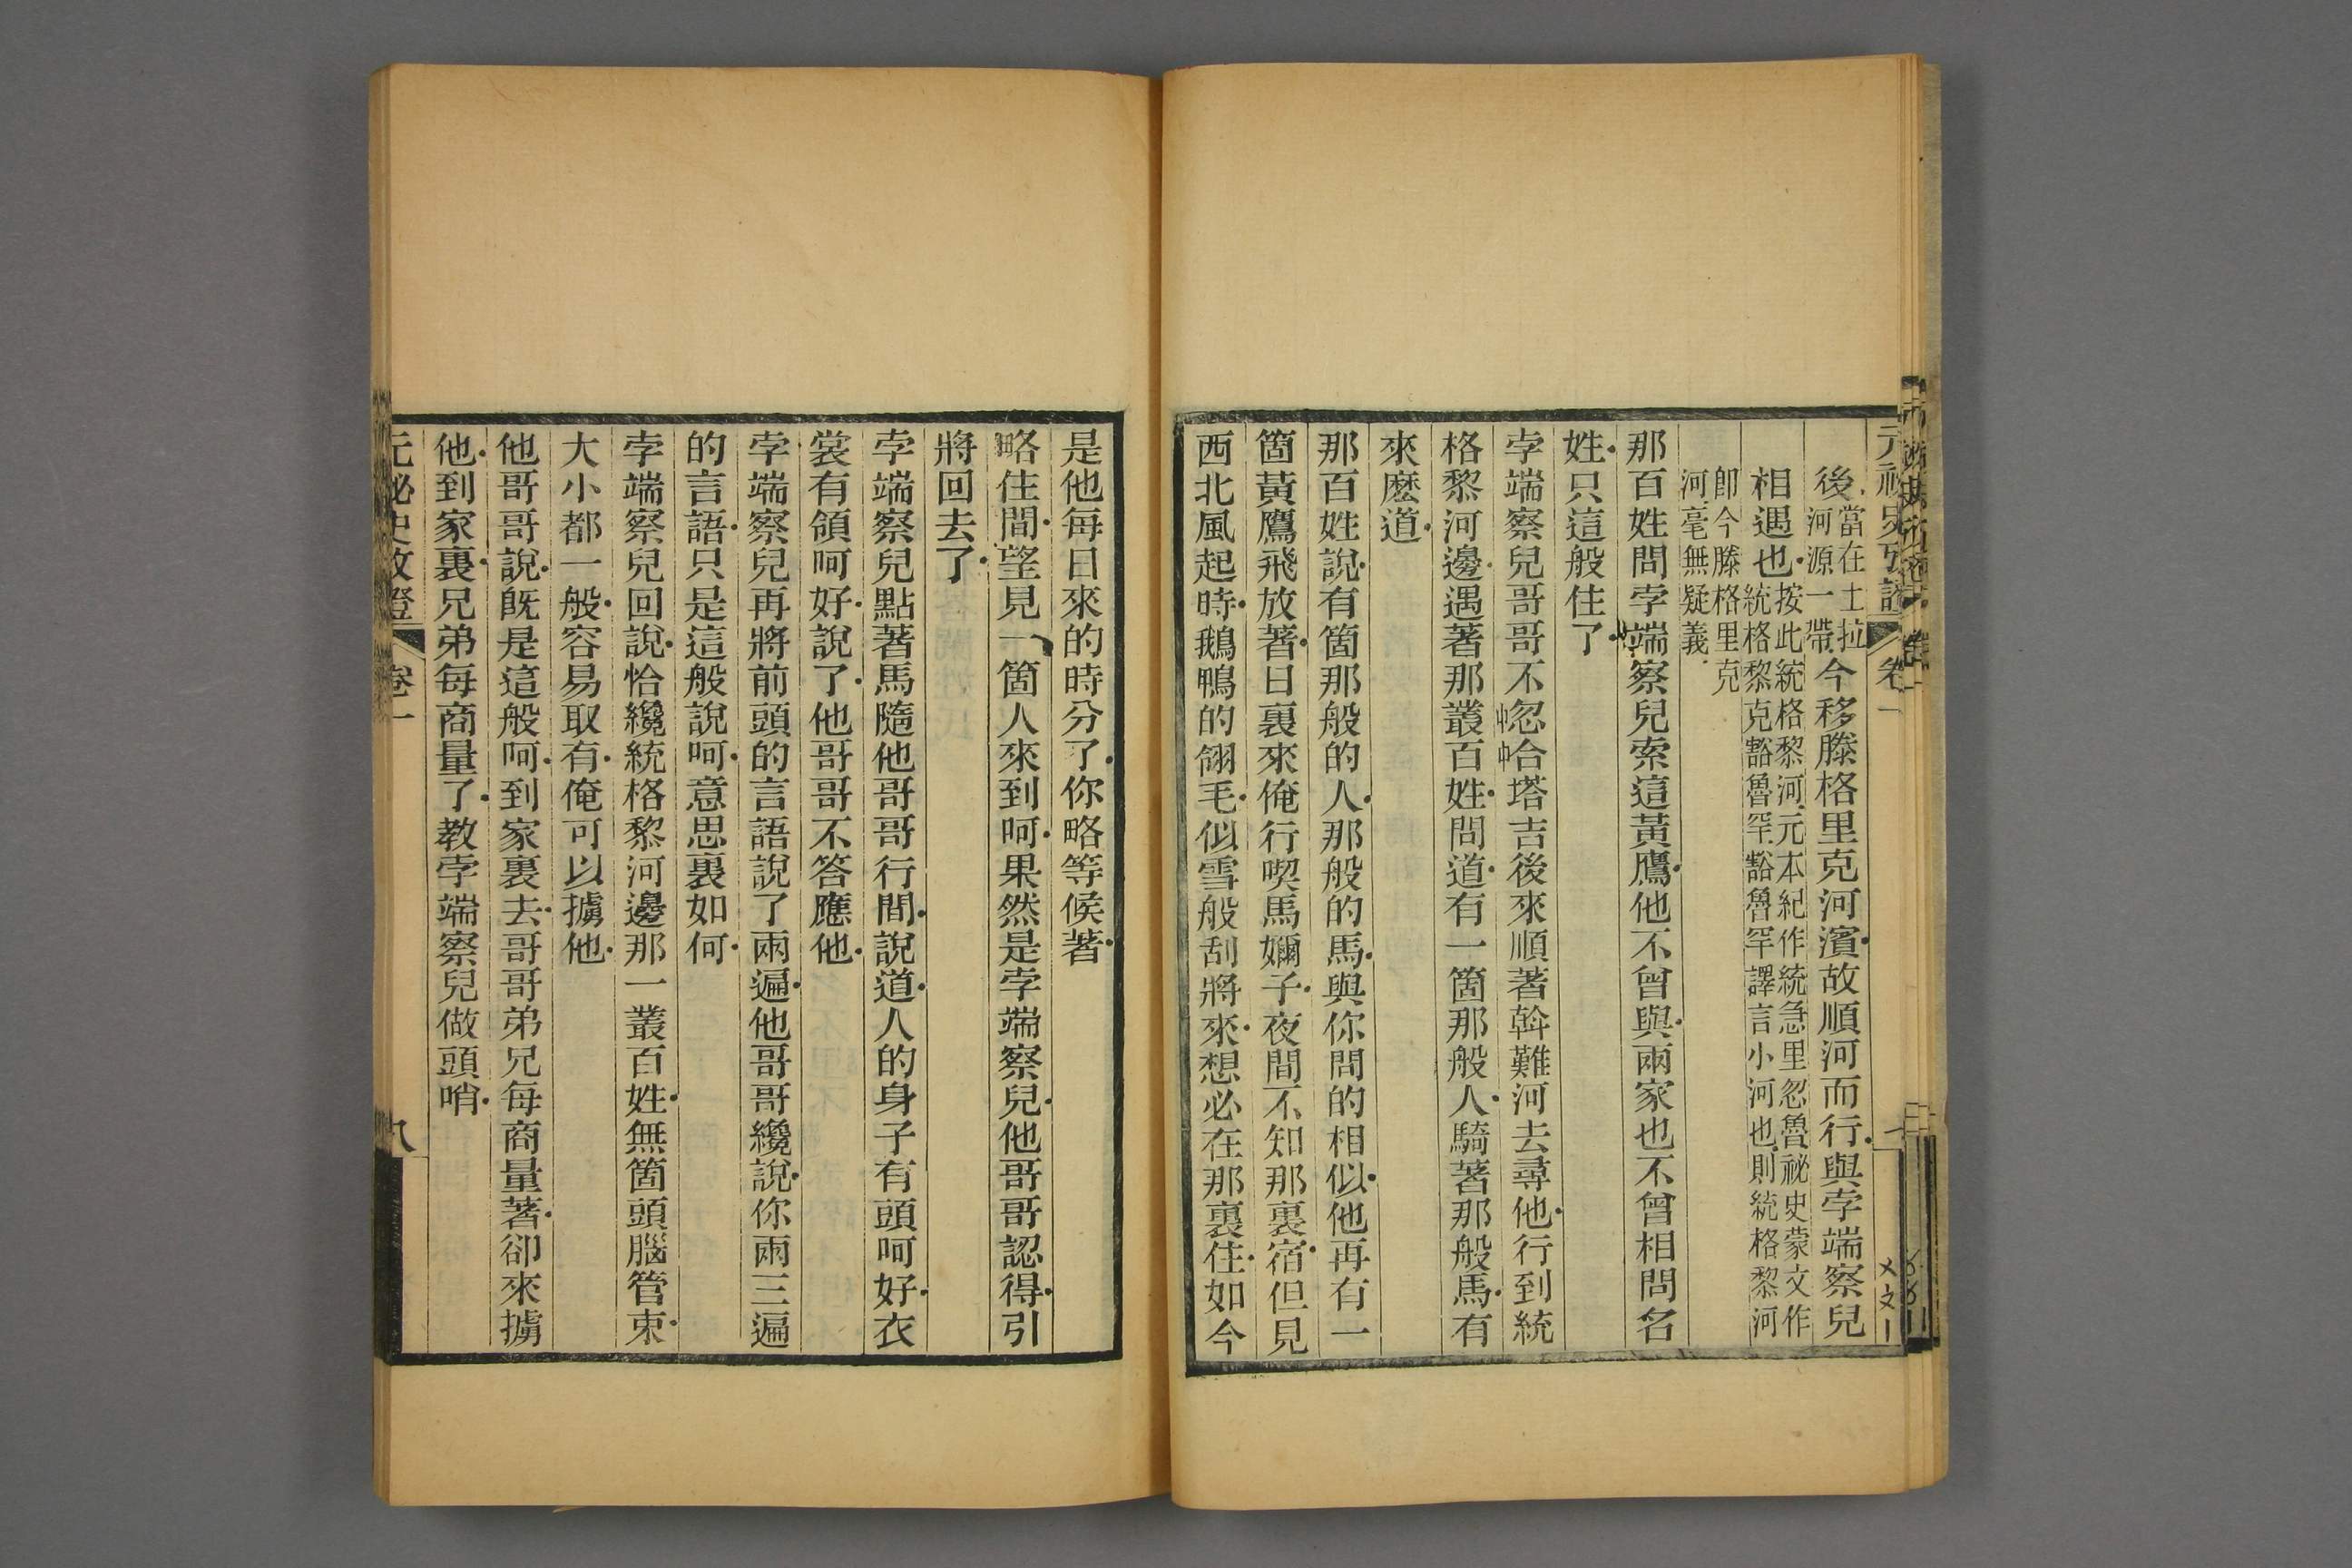 元祕史攷證 卷一
後當在土拉
河源一帶今移滕格里克河濱故順河而行與孛端察兒
相遇也按此統格黎河元本紀作統急里忽魯祕史蒙文作
統格黎克豁魯罕豁魯罕譯言小河也則統格黎河
卽今滕格里克
河毫無疑義
那百姓問孛端察兒索這黃鷹他不曾與兩家也不曾相問名
姓只這般住了
孛端察兒哥哥不忽合塔吉後來順著斡難河去尋他行到統
格黎河邊遇著那叢百姓問道有一箇那般人騎著那般馬有
來麽道
那百姓說有箇那般的人那般的馬與你問的相似他再有一
箇黃鷹飛放著日裏來俺行喫馬嬭子夜間不知那裏宿但見
西北風起時鵝鴨的翎毛似雪般刮將來想必在那裏住如今
是他每日來的時分了你略等候著
略住間望見一箇人來到呵果然是孛端察兒他哥哥認得引
將回去了
孛端察兒點著馬隨他哥哥行間說道人的身子有頭呵好衣
裳有領呵好說了他哥哥不答應他
孛端察兒再將前頭的言語說了兩遍他哥哥纔說你兩三遍
的言語只是這般說呵意思裏如何
孛端察兒回說恰纔統格黎河邊那一叢百姓無箇頭腦管束
大小都一般容易取有俺可以擄他
他哥哥說旣是這般呵到家裏去哥哥弟兄每商量著卻來擄
他到家裏兄弟每商量了教孛端察兒做頭哨
元祕史攷證 卷一 八